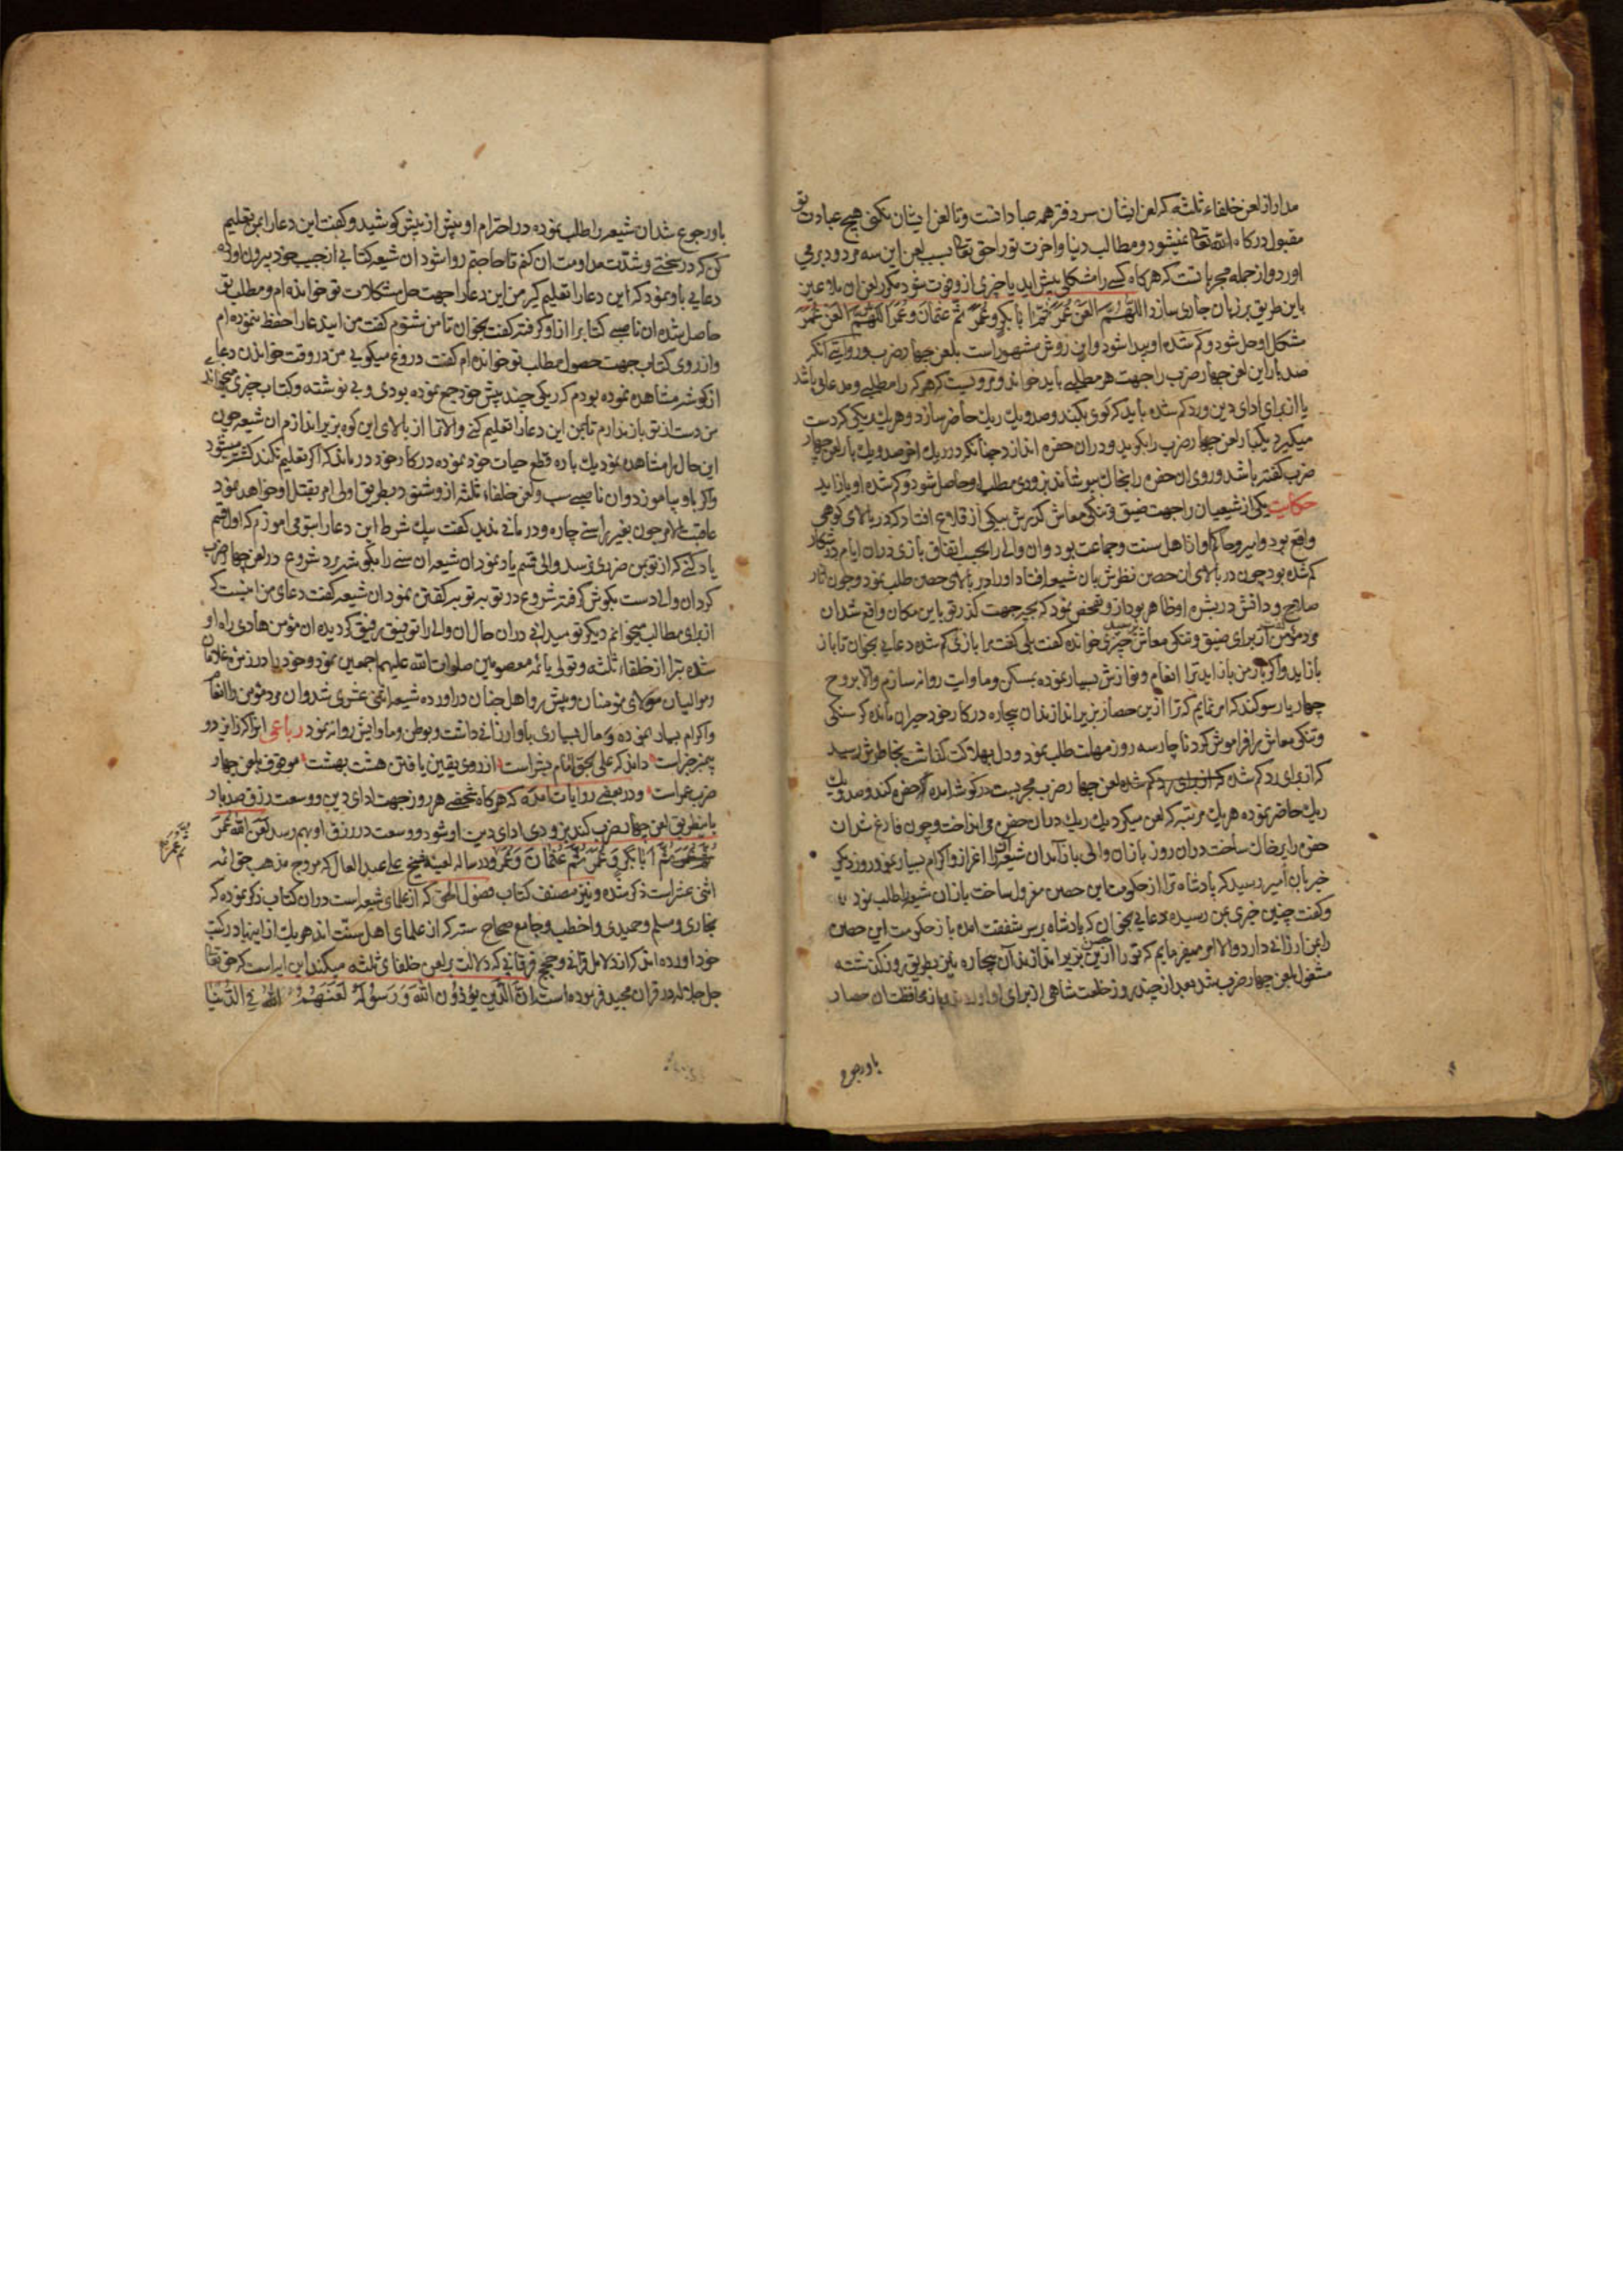 مدار از لعن خلفاء ثلثه که لعن ایشان سر دفتر همه عباداتست و تا لعن ایشان نکنی هیچ عبادت تو
مقبول درکاه الله تعا نمیشود و مطالب دنیا و اخرت تو را حق تعا بسبب لعن این سه مردود برمی
اورد و از جمله مجرباتست که هرکاه کسی را مشکلی پیش اید یا چیزی از و فوت شود مکرر لعن ان ملاعین
باین طریق بر زبان جاری سازد اللهم العن عمر ثم ابا بکر و عمر ثم عثمان و عمر اللهم العن عمر
مشکل او حل شود و کم شده او پیدا شود و این روش مشهور است بلعن چهار ضرب و روایتی انکه
صد بار این لعن چهار ضرب را جهت هر مطلبی باید خواند و مرویست که هر کرا مطلبی و مدعائی باشد
یا از برای ادای دین و رد کم شده باید که کوی بکند و صد و یک ریک حاضر سازد و هر یک ریکی که دست
میکیرد یکبار لعن چهار ضرب را بکوید و در ان حفره اندازد چنانکه در ریک اخر صد و یک بار لعن چهار
ضرب کفته باشد و روی ان حفره را بخاک بپوشاند بزودی مطلب او حاصل شود و کم شده او باز اید
حکایت یکی از شیعیان را جهت ضیق و تنکی معاش کذرش بیکی از قلاع افتاد که در بالای کوهی
واقع بود و امیر و حاکم او از اهل سنت و جماعت بود و ان والی را بحسب اتفاق بازی در ان ایام در شکار
کم شده بود چون در بالای ان حصن نظرش بان شیعه افتاد او را در بالای حصن طلب نمود و چون اثار
صلاح و دانش در بشره او ظاهر بود از و تفحص نمود که بچه جهت کذر تو باین مکان واقع شد ان
مرد مؤمن از برای ضیق و تنکی معاش چیزی خوانده کفت بلی کفت مرا بازی کم شده دعایی بخوان تا باز
باز اید و اکر باز من باز اید ترا انعام و نوازش بسیار نموده بمسکن و ماوات روانه سازم و الا بروح
چهار یار سوکند که امر نمایم که ترا ازین حصار بزیر اندازند ان بیچاره در کار خود حیران مانده کرسنکی
و تنکی معاش را فراموش کرد ناچار سه روز مهلت طلب نمود و دل بهلاکت کذاشت بخاطرش رسید
که از برای رد کم شده لعن چهار ضرب مجربست در کوشه امده حفره کند و صد و یک
ریک حاضر نموده هر یک مرتبه که لعن میکرد یک ریک در ان حفره می انداخت و چون فارغ شد ان
حفره را پر خاک ساخت در ان روز باز ان والی باز آمد ان شیعه را اعزاز و اکرام بسیار نمود روز دیکر
خبر بان امیر رسید که پادشاه ترا از حکومت این حصن معزول ساخت باز ان شیعه را طلب نمود
و کفت چنین خبری بمن رسیده دعایی بخوان که پادشاه بر سر شفقت امده باز حکومت این حصن
را بمن ارزانی دارد و الا امر میفرمایم که تو را ازین حصن بزیر اندازند آن بیچاره باین طریق روز کذشته
مشغول بلعن چهار ضرب شد بعد از چند روز خلعت شاهی از برای او اوردند و باز محافظت ان حصار
باو رجوع
باو رجوع شد ان شیعه را طلب نموده در احترام او بیش از پیش کوشید و کفت این دعا را بمن تعلیم
کن که در سختی و شدت مداومت ان کنم تا حاجتم روا شود ان شیعه کتابی از جیب خود بیرون اورده
دعایی باو نمود که این دعا را تعلیم کیر من این دعا را جهت حل مشکلات تو خوانده ام و مطلب تو
حاصل شده ان ناصبی کتاب را از او کرفته کفت بخوان تا من شنوم کفت من این دعا را حفظ ننموده ام
و از روی کتاب جهت حصول مطلب تو خوانده ام کفت دروغ میکویی من در وقت خواندن دعا
از کوشه مشاهده نموده بودم که ریکی چند پیش خود جمع نموده بودی و بی نوشته و کتاب چیزی میخواندی
من دست از تو باز ندارم تا بمن این دعا را تعلیم کنی و الا ترا از بالای این کوه بزیر اندازم ان شیعه چون
این حال را مشاهده نمود یک باره قطع حیات خود نموده در کار خود درماند که اکر تعلیم نکند کشته میشود
و اکر باو بیاموزد و ان ناصبی سب و لعن خلفاء ثلثه از و شنود بطریق اولی امر بقتل او خواهد نمود
عاقبت الامر چون بغیر راستی چاره و درمانی ندید کفت بیک شرط این دعا را بتو می اموزم که اول قسم
یاد کنی که از تو بمن ضرری نرسد والی قسم یاد نمود ان شیعه ان سنی را بکوشه برد شروع در لعن چهار ضرب
کرد ان والی دست بکوش کرفته شروع در توبه توبه کفتن نمود ان شیعه کفت دعای من اینست که
از برای مطالب میخوانم دیکر تو میدانی در ان حال ان والی را توفیق رفیق کردیده ان مؤمن هادی راه او
شده تبرا از خلفاء ثلثه و تولی بائمه معصومین صلوات الله علیهم اجمعین نمود و خود را در زمره غلامان
و موالیان مولای مؤمنان و پیش رو اهل جنان در اورده شیعه اثنی عشری شد و ان مرد مؤمن را انعام
و اکرام بسیار نموده و مال بسیاری باو ارزانی داشت و بوطن و ماوایش روانه نمود رباعی انرا که ز این دو
پیمبر خبر است داند که علی بحق امام بشر است از روی یقین یافتن هشت بهشت موقوف بلعن چهار
ضرب عمر است و در بعضی روایات امده که هرکاه شخصی هر روز جهت ادای دین و وسعت رزق صد بار
باینطریق لعن چهار ضرب کند بزودی ادای دین او شود و وسعت در رزق او بهم رسد لعن الله عمر
ثم ابا بکر و عمر ثم عثمان و عمر و در رساله لعنیه شیخ علی عبد العال که مروج مذهب حق ائمه
اثنی عشر است ذکر شده و نیز مصنف کتاب فصول الحق که از علمای شیعه است در ان کتاب ذکر نموده که
بخاری و مسلم و حمیدی و اخطب و جامع صحاح سته که از علمای اهل سنت اند هر یک از اینها در کتب
خود اورده اند که از دلایل قرانی و حجج فرقانی که دلالت بر لعن خلفای ثلثه میکند این ایه است که حق تعا
جل جلاله در قران مجید فرموده است ان الذین یؤذون الله و رسوله لعنهم الله فی الدنیا